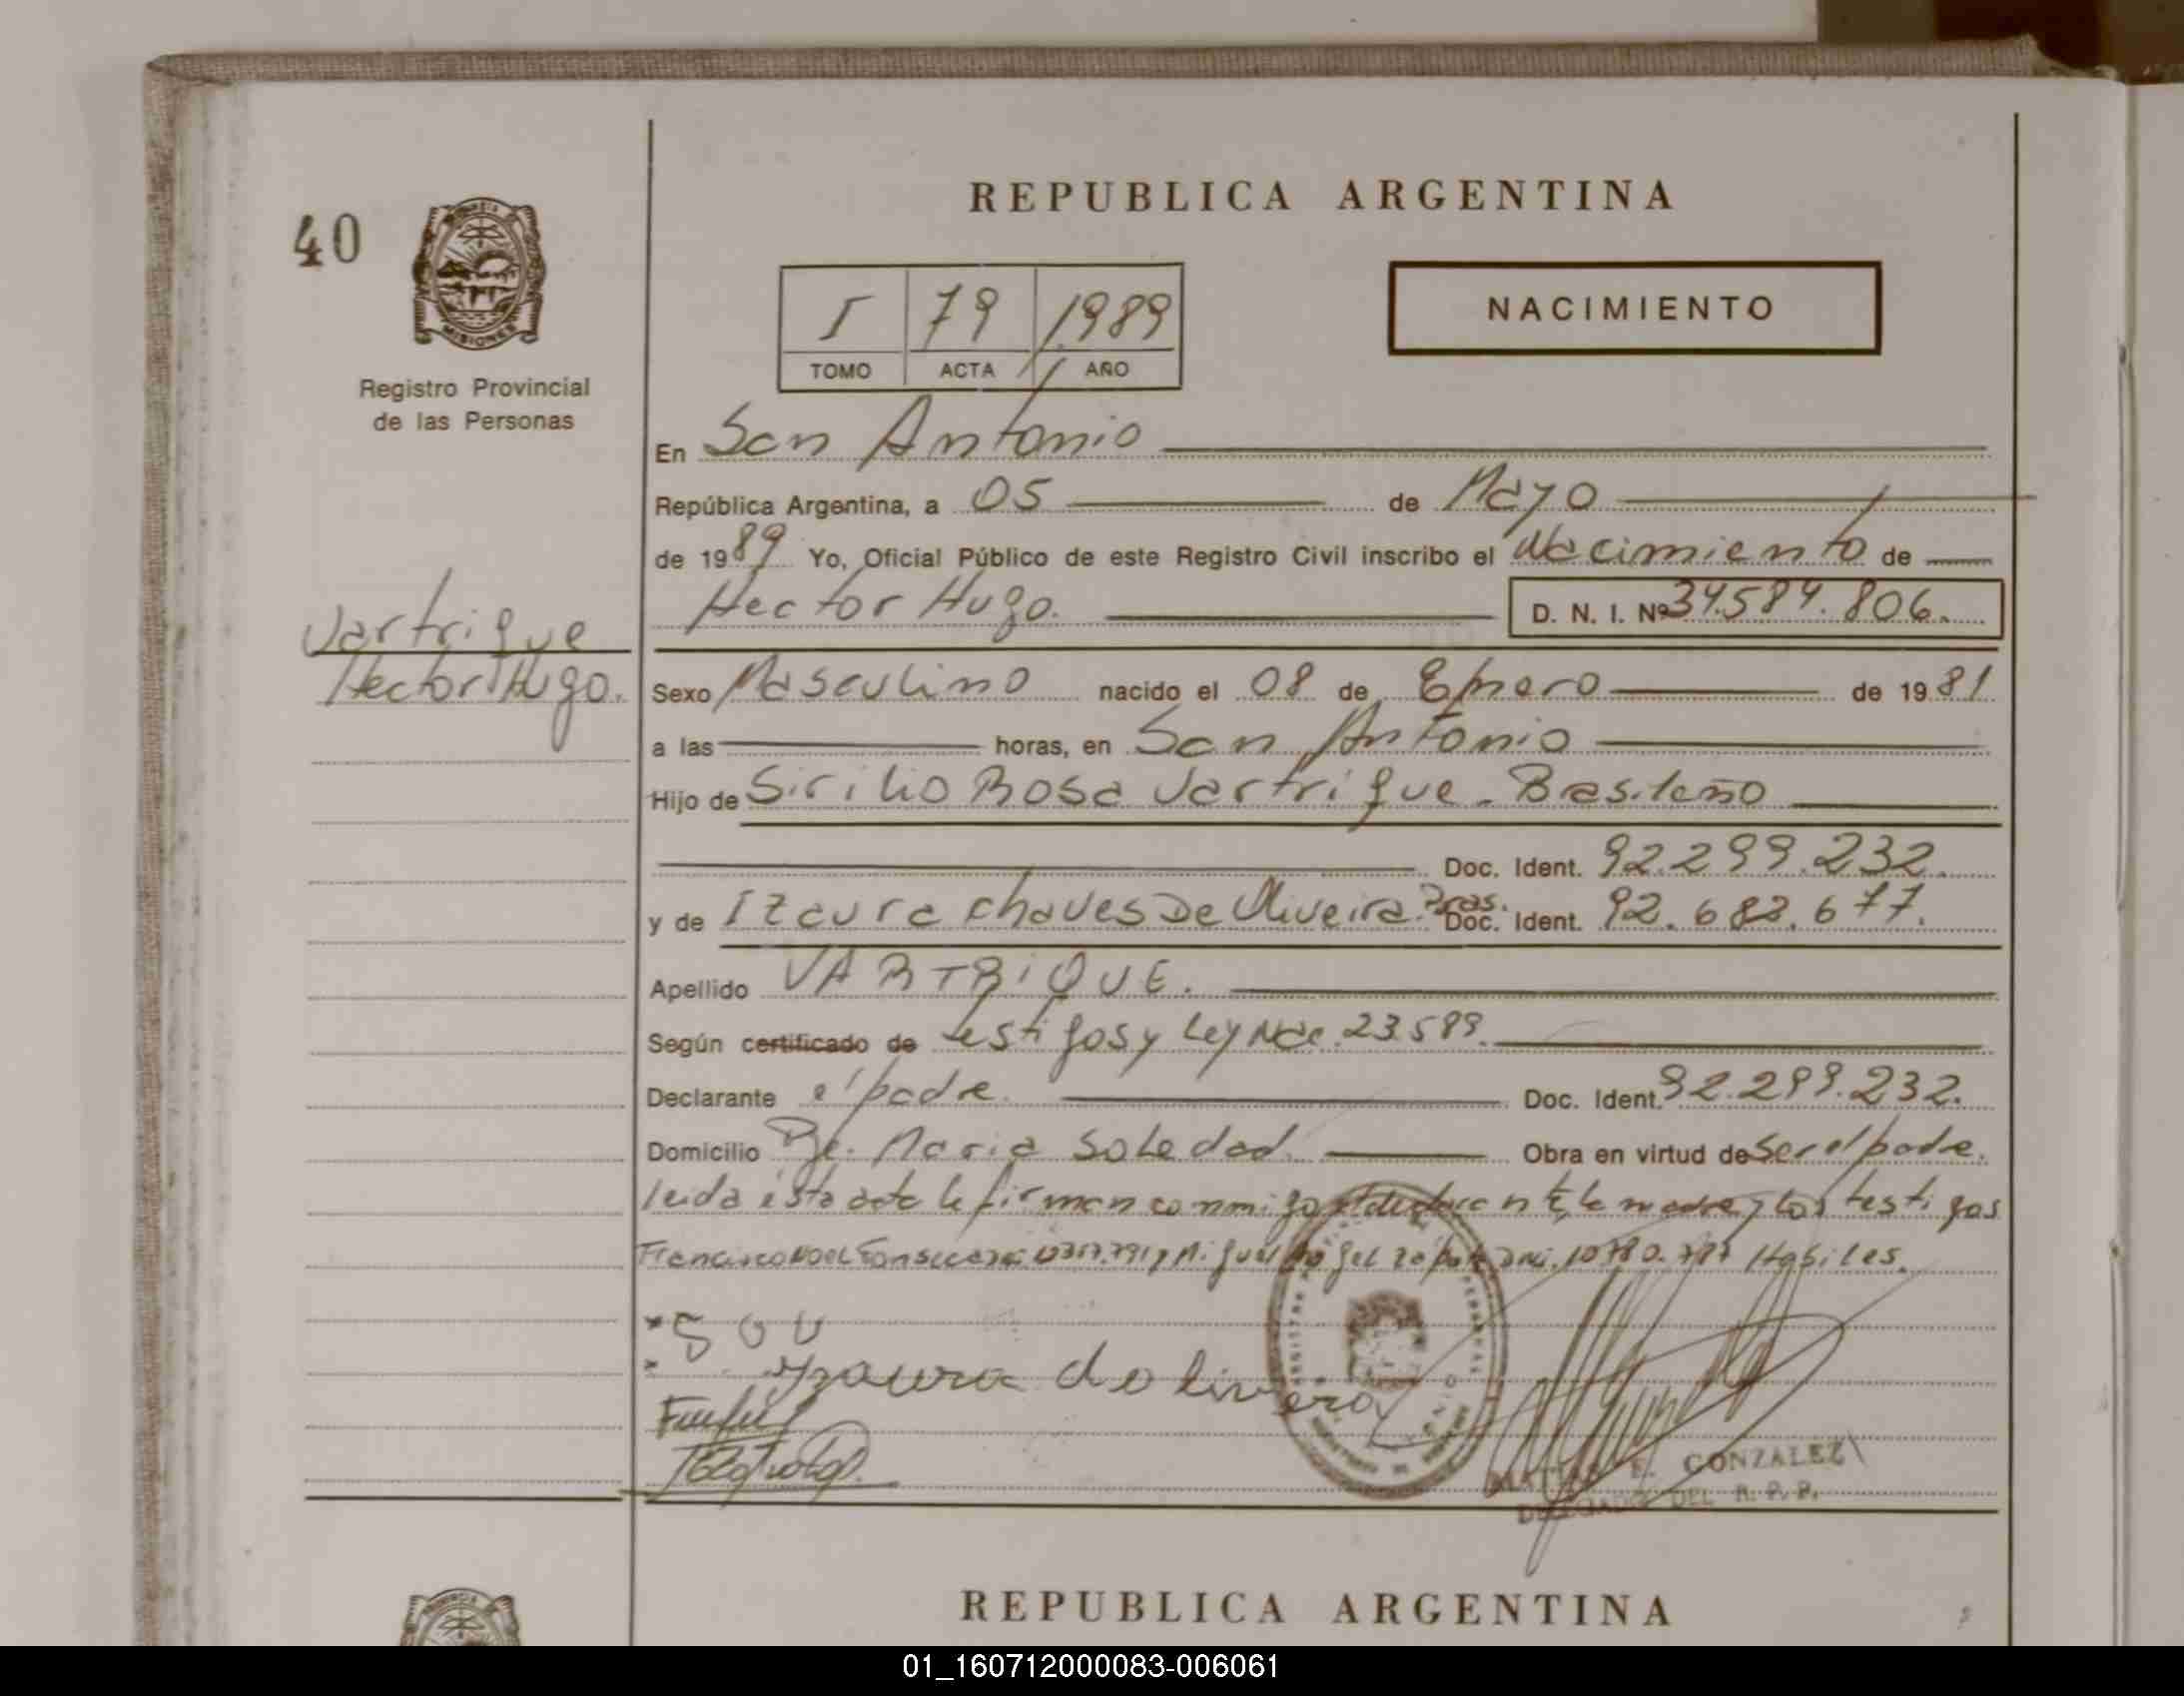 REPUBLICA ARGENTINA
40
MISIONES
Registro Provincial
de las Personas
I 79 1989
TOMO ACTA AÑO
NACIMIENTO
En San Antonio
República Argentina, a 05 de Mayo
de 1989 Yo, Oficial Público de este Registro Civil inscribo el Nacimiento de
Hector Hugo. D. N. I. Nº 34.584.806.
Vartrique
Hector Hugo.
Sexo Masculino nacido el 08 de Enero de 1981
a las horas, en San Antonio
Hijo de Sirilio Rosa Vartrique - Brasileño
Doc. Ident. 92.299.232.
y de Izaura chaves De Oliveira. Bras. Doc. Ident. 92.682.677.
Apellido VARTRIQUE.
Según certificado de testigos y Ley Nac. 23.589.
Declarante el padre. Doc. Ident. 92.299.232.
Domicilio Pje. Maria Soledad. Obra en virtud de ser el padre.
leida ésta acta la firman conmigo el declarante, la madre y los testigos
Francisco Miguel Habiles.
Izaura de
E. GONZALEZ
DELEGADO DEL R. P. P.
REPUBLICA ARGENTINA
01_160712000083-006061